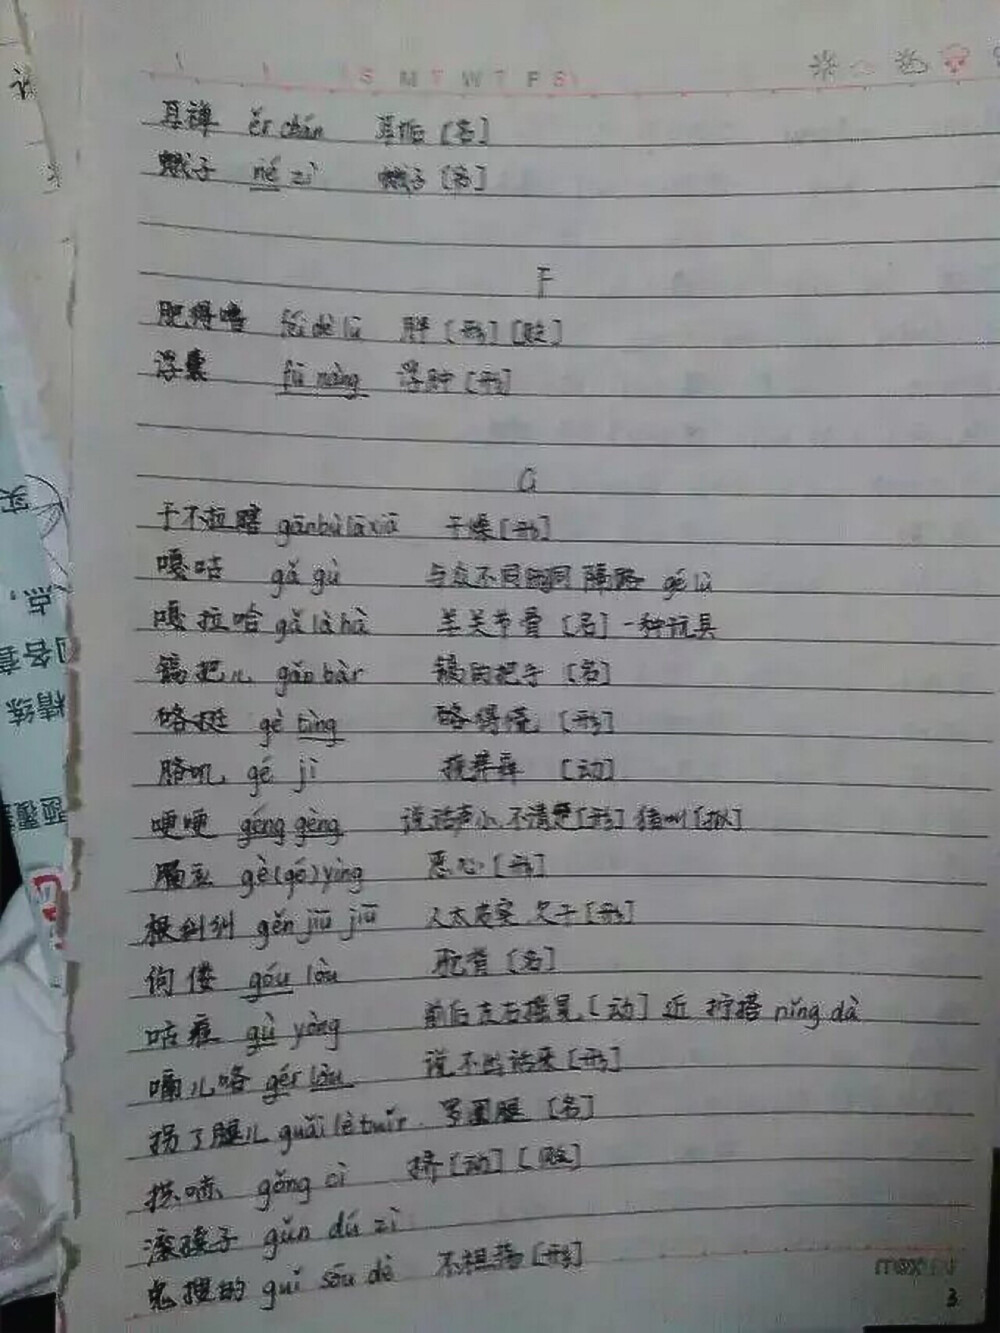 S M T W T F S
耳禅 ěr chán 耳垢 [名]
蛾子 né zì 蛾子 [名]
F
肥得噜 féi dè lū 胖 [形] [贬]
浮囊 fū nàng 浮肿 [形]
G
干不拉瞎 gānbùlāxiā 干燥 [形]
嘎咕 gǎ gù 与众不同 同 隔路 gé lù
嘎拉哈 gǎ là hà 羊关节骨 [名] 一种玩具
镐把儿 gǎo bàr 镐的把子 [名]
硌挺 gè tìng 硌得慌 [形]
胳叽 gé jì [动]
哽哽 gěng gèng 说话声小,不清楚 [形] 猪叫 [拟]
膈应 gè(gé)yìng 恶心 [形]
根纠纠 gěn jiū jiū 人太老实 欠子 [形]
佝偻 góu lòu 驼背 [名]
gù yòng 前后左右摇晃 [动] 近 拧搭 nǐng dà
嗝儿咯 gér lòu 说不出话来 [形]
拐了腿儿 guǎi lè tuǐr 罗圈腿 [名]
gǒng cì 挤 [动] [贬]
滚犊子 gǔn dú zì
鬼搜的 guǐ sōu dè 不坦荡 [形]
3
实
点,
精练